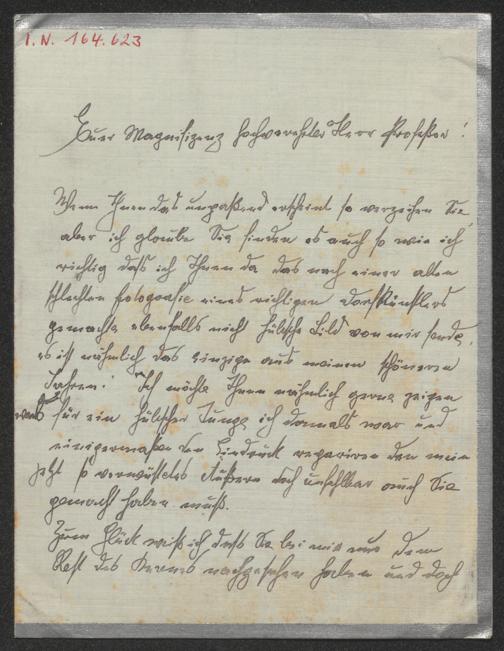 I.N. 164.623
Euer Magnifizenz hochverehrter Herr Professor!
Wenn Ihnen das unpaßend erscheint so verzeihen Sie,
aber ich glaube Sie finden es auch so wie ich
richtig daß ich Ihnen da das nach einer alten
schlechten fotografie eines richtigen Dorfkünstlers
gemachte ebenfalls nicht hübsche Bild von mir sende,
es ist nähmlich das einzige aus meinen schöneren
Jahren! Ich möchte Ihnen nähmlich gerne zeigen
was für ein hübscher Junge ich damals war und
einigermaßen den Eindruck repariren den mein
jetzt so verwüstetes Äußern doch unfehlbar auch Sie
gemacht haben muß.
Zum Glück weiß ich daß Sie bei mir nur dem
Rest des nachgesehen haben und doch